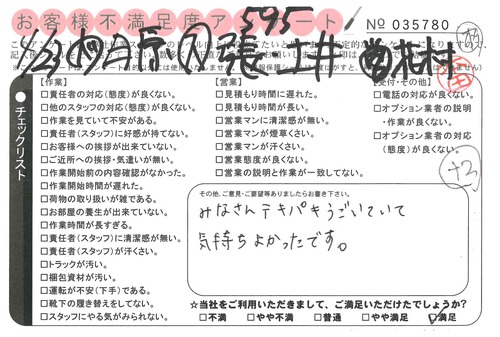 お客様不満足度アンケート
595
No 035780
【作業】
□責任者の対応(態度)が良くない。
□他のスタッフの対応(態度)が良くない。
□作業を見ていて不安がある。
□責任者(スタッフ)に好感が持てない。
□お客様への挨拶が出来ていない。
□ご近所への挨拶・気遣いが無い。
□作業開始前の内容確認がなかった。
□作業開始時間が遅れた。
□荷物の取り扱いが雑である。
□お部屋の養生が出来ていない。
□作業時間が長すぎる。
□責任者(スタッフ)に清潔感が無い。
□責任者(スタッフ)が汗くさい。
□トラックが汚い。
□梱包資材が汚い。
□運転が不安(下手)である。
□靴下の履き替えをしてない。
□スタッフにやる気がみられない。
【営業】
□見積もり時間に遅れた。
□見積もり時間が長い。
□営業マンに清潔感が無い。
□営業マンが煙草くさい。
□営業マンが汗くさい。
□営業態度が良くない。
□営業の説明と作業が一致してない。
【受付・その他】
□電話の対応が良くない。
□オプション業者の説明
・作業が良くない。
□オプション業者の対応
(態度)が良くない。
チェックリスト
その他、ご意見・ご要望等ありましたらお書き下さい。
みなさんテキパキうごいていて
気持ちよかったです。
☆当社をご利用いただきまして、ご満足いただけたでしょうか?
□不満 □やや不満 □普通 □やや満足 □満足